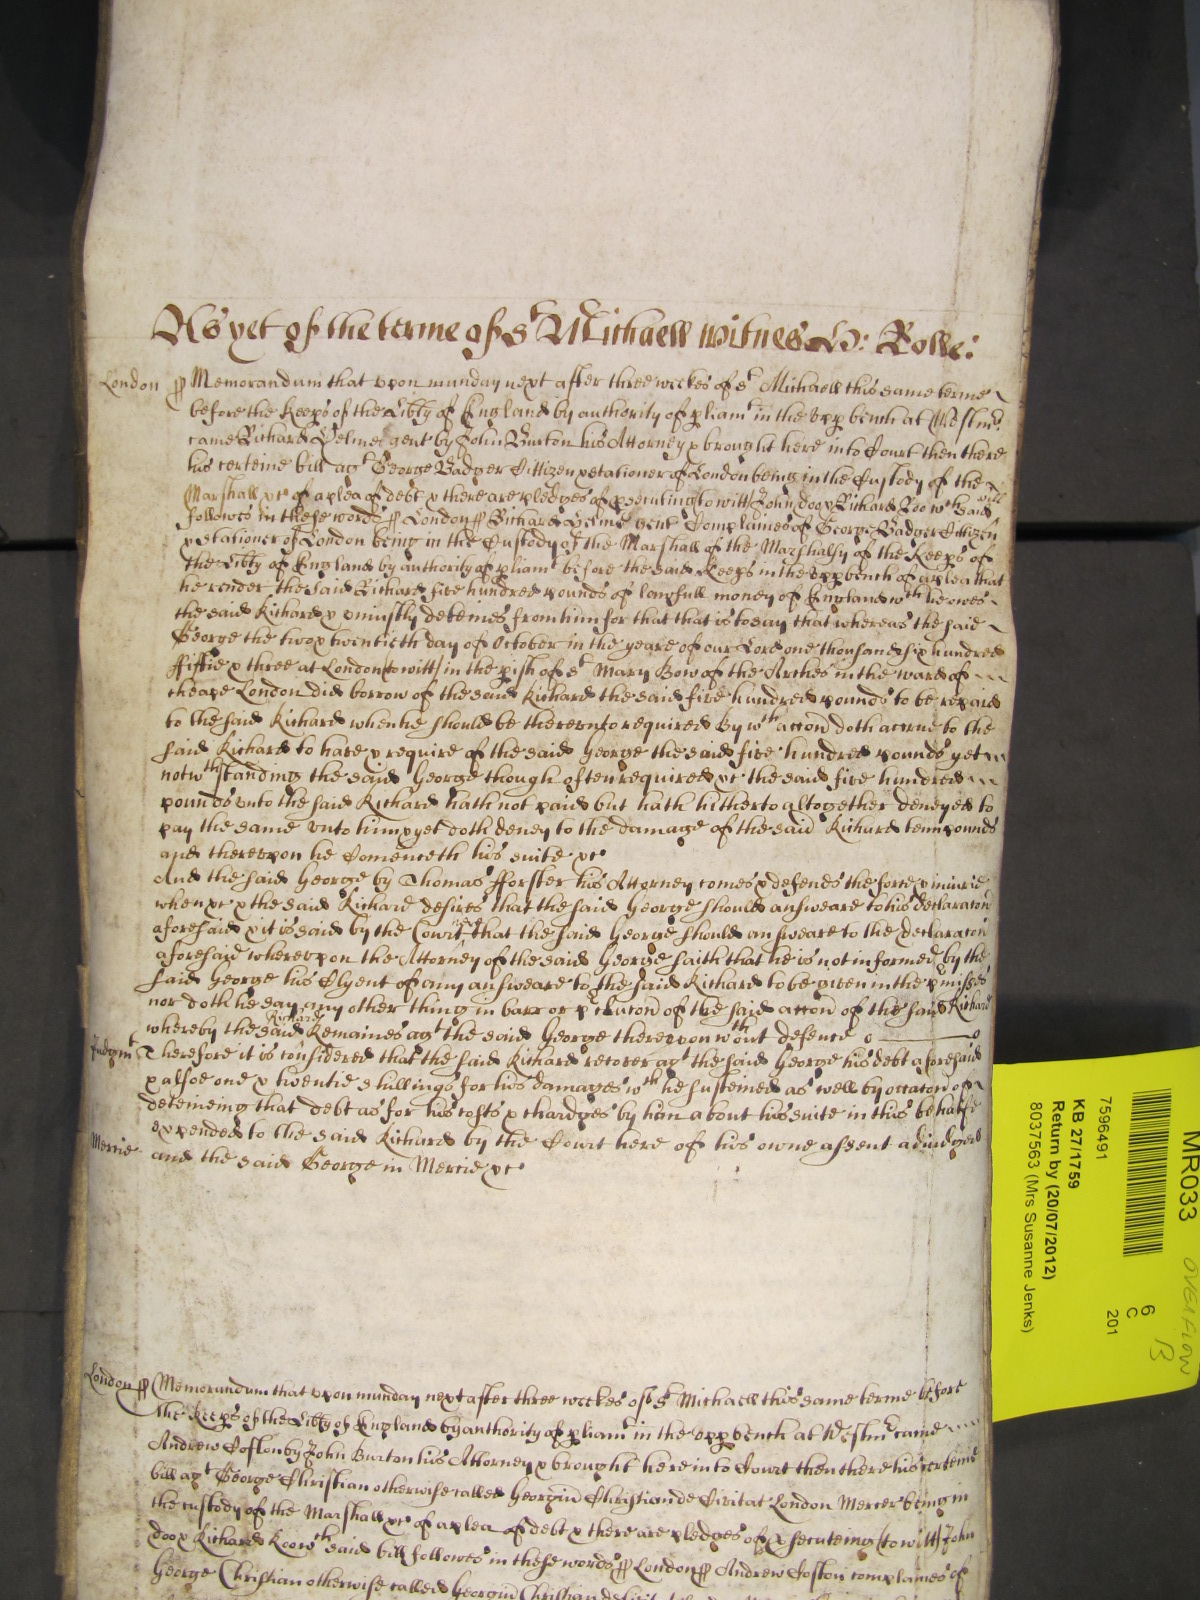 As yet of the terme of St Michaell witnes H: Rolle:
London ss Memorandum that upon munday next after three weekes of St Michaell this same terme
before the Keeps of the Libty of England by authority of pliamt in the upp bench at Westmr
came Richard gent by John Burton his Attorney & brought here into Court then there
his certeine bill agt George Badger Cittizen & stationer of London being in the Custody of the
Marshall &c of a plea of debt & there are pledges of psecuting to witt John doo & Richard Roo wch said bill
followes in these words ss London ss Richard gent Complaines of George Badger Cittizen
& stationer of London being in the Custody of the Marshall of the Marshalsy of the Keeps of
the Libty of England by authority of pliamt before the said Keeps in the upp bench of a plea that
he render the said Richard five hundred pounds of lawfull money of England wch he owes
the said Richard & uniustly deteines from him for that that is to say that whereas the said
George the two & twentieth day of October in the yeare of our Lord one thousand six hundred
ffiftie & three at London to witt in the pish of St Mary Bow of the Arches in the ward of
Cheape London did borrow of the said Richard the said five hundred pounds to be repaid
to the said Richard when he should be thereunto required By wch accon doth accrue to the
said Richard to have & require of the said George the said five hundred pounds yet
notwthstanding the said George though often required &c the said five hundred
pounds unto the said Richard hath not paid but hath hitherto altogether denyed to
pay the same unto him & yet doth deney to the damage of the said Richard tenn pounds
and thereupon he Comenceth his suite &c
And the said George by Thomas fforster his Attorney comes & defends the force & iniurie
when &c & the said Richard desires that the said George should answeare to his declaracon
aforesaid & it is said by the Court here that the said George should answeare to the declaracon
aforesaid whereupon the Attorney of the said George saith that he is not informed by the
said George his Clyent of any answeare to the said Richard to be given in the pmisses
nor doth he say any other thing in barr or pclucon of the said accon of the said Richard
whereby the said Richard Remaines agt the said George thereupon wthout defence
Judgmt Therefore it is considered that the said Richard recover agt the said George his debt aforesaid
& alsoe one & twentie shillings for his damages wch he susteined as well by occacon of
deteineing that debt as for his costs & chardges by him about his suite in this behalfe
expended to the said Richard by the Court here of his owne assent adiudged
Mercie and the said George in Mercie &c
London ss Memorandum that upon munday next after three weekes of St Michaell this same terme before
the Keeps of the Libty of England by authority of pliamt in the upp bench at Westmr came
Andrew Coston by John Burton his Attorney & brought here into Court then there his certeine
bill agt George Christian otherwise called Georgiu Christian de Civitat London Mercer being in
the custody of the Marshall &c of a plea of debt & there are pledges of psecuteing to witt John
doo & Richard Roo wch said bill followes in these words ss London ss Andrew Coston complaines of
George Christian otherwise called Georgiu Christian de
MR033
OVERFLOW
B
6
C
201
7596491
KB 27/1759
Return by (20/07/2012)
8037563 (Mrs Susanne Jenks)